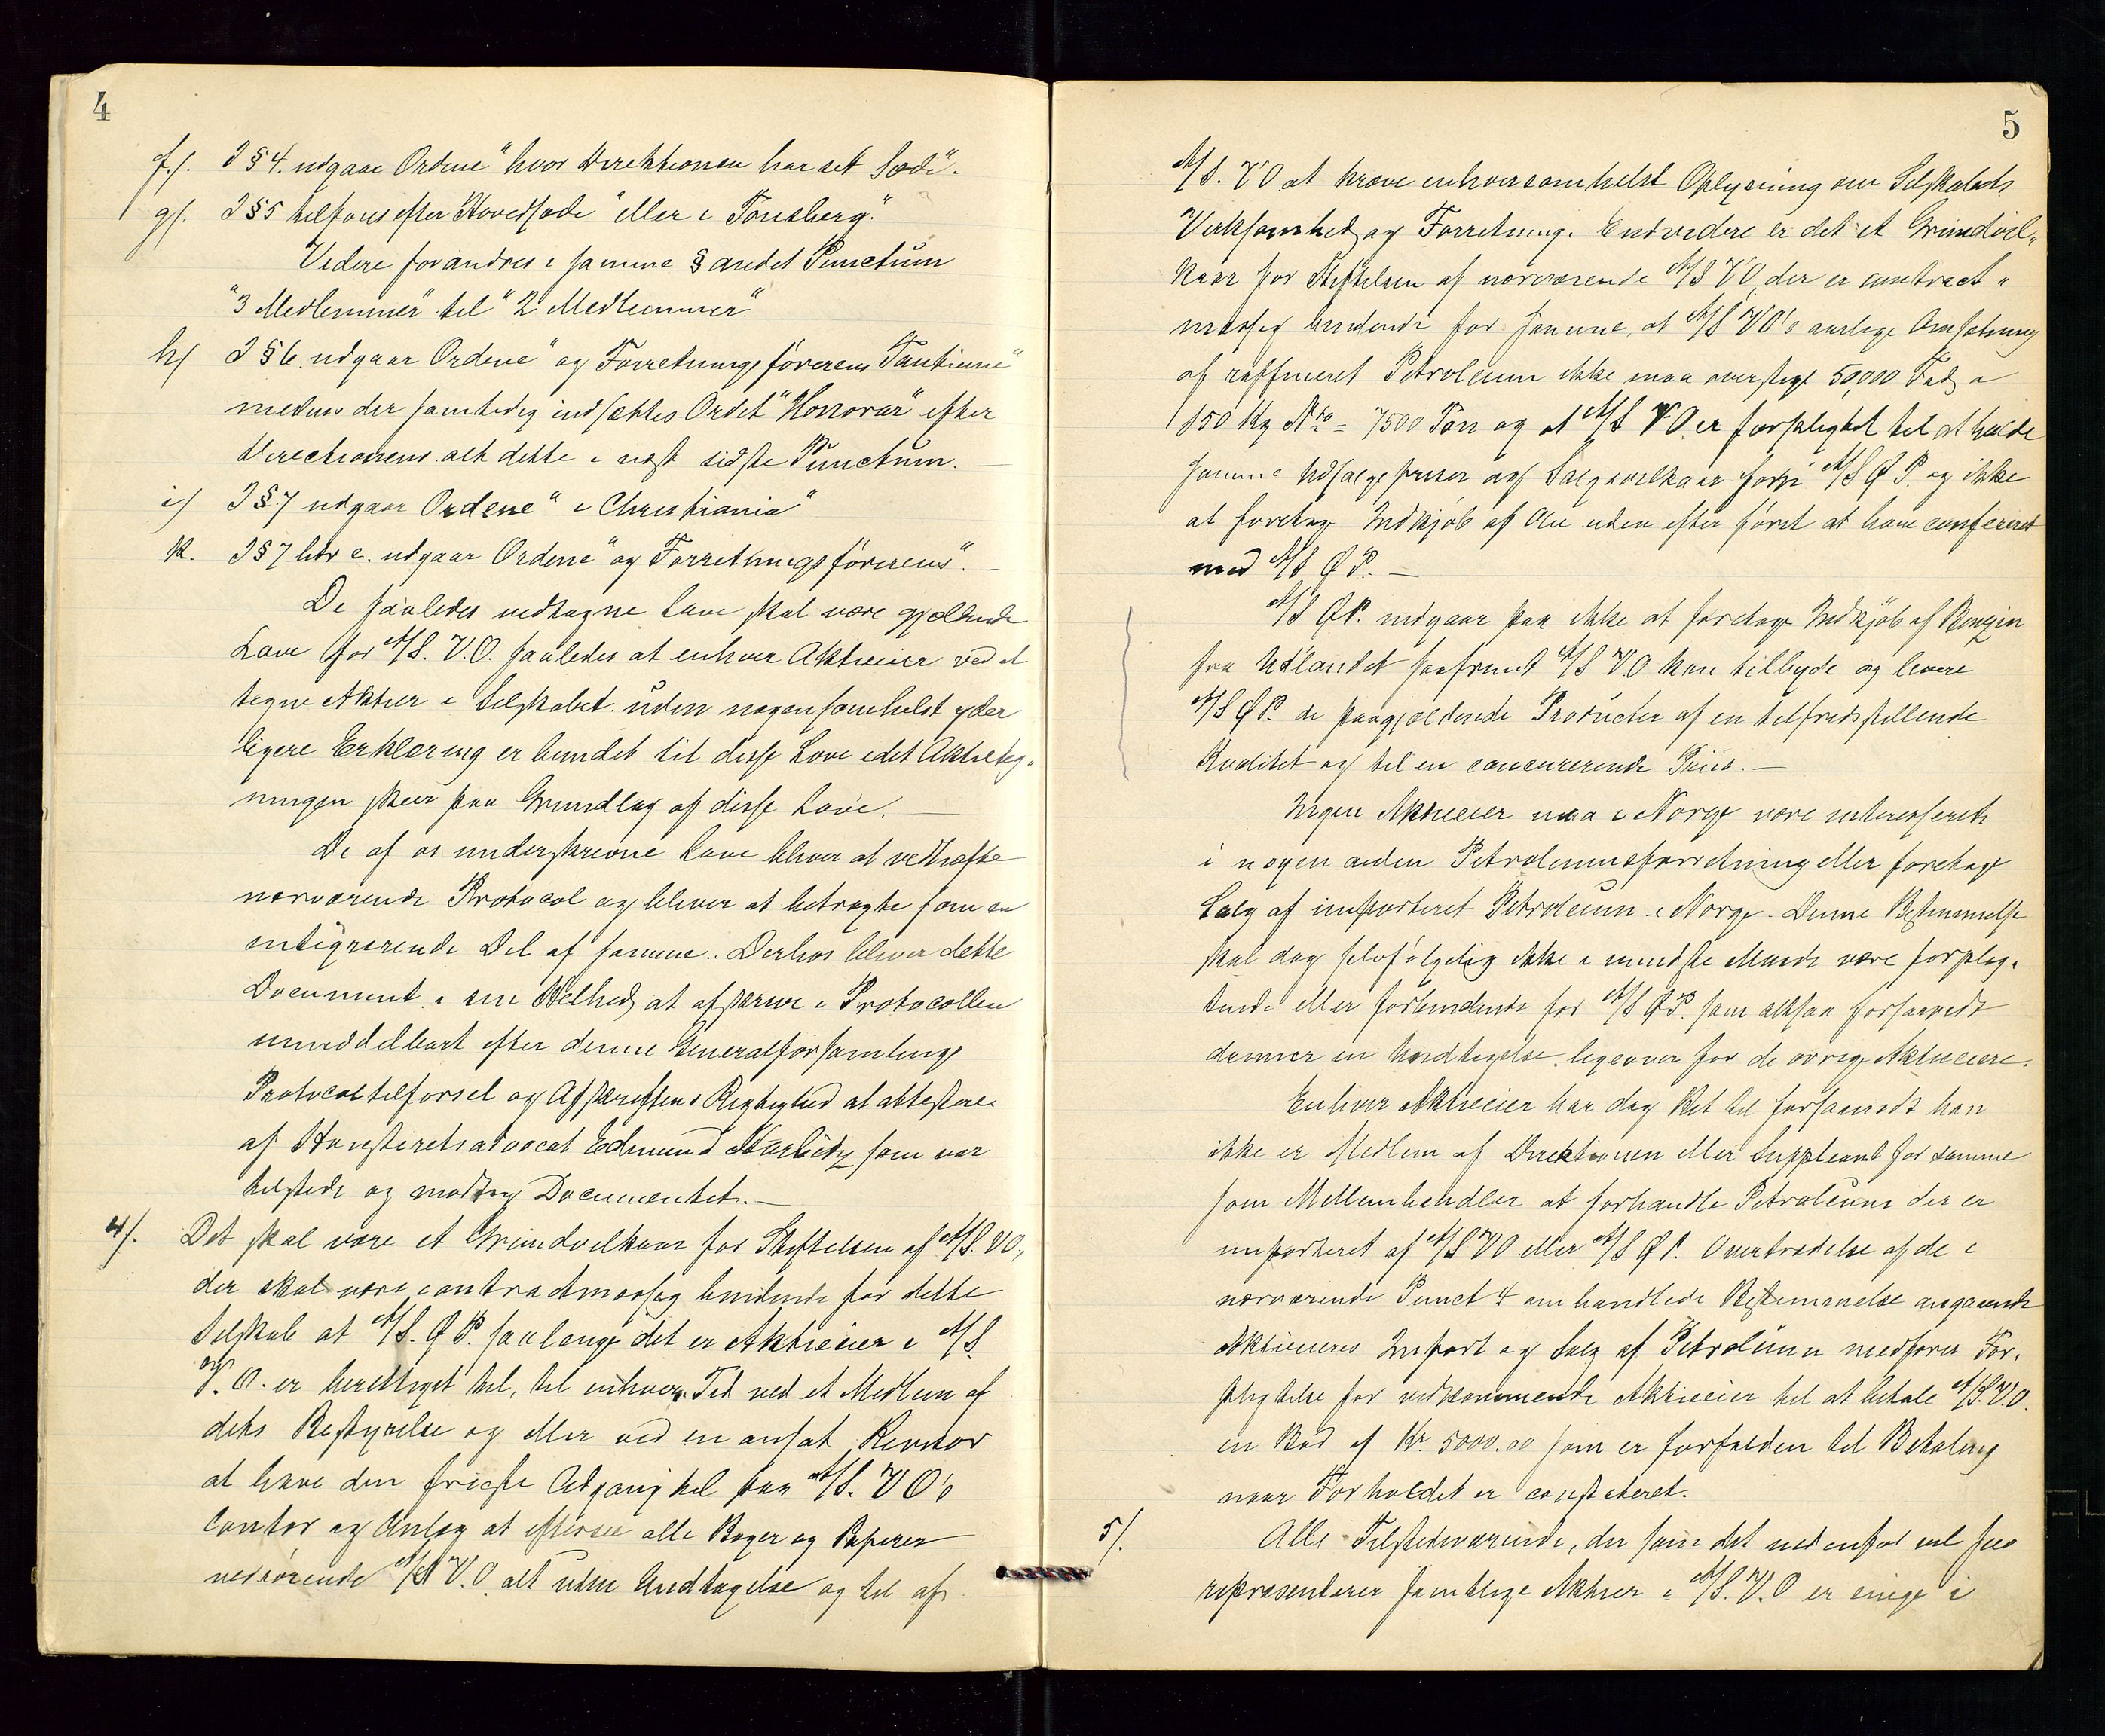 4
f/. I § 4. udgaar Ordene "hvor Direktionen har sit Sæde".
g/. I § 5 tilføies efter Hovedsæde "eller i Tønsberg".
Videre forandres i samme § andet Punctum
"3 Medlemmer" til "2 Medlemmer".
h/ I § 6. udgaar Ordene "og Forretningsførerens Tantieme"
medens der samtidig indsættes Ordet "Honorar" efter
Directionens. alt dette i næst sidste Punctum. —
i/ I § 7 udgaar Ordene "i Christiania"
k. I § 7 litr c. udgaar Ordene "og Forretningsførerens". —
De saaledes vedtagne Love skal være gjældende
Love for A/S. V.O. saaledes at enhver Aktieeier ved at
tegne Aktier i Selskabet uden nogensomhelst yder
ligere Erklæring er bundet til disse Love idet Aktieteg-
ningen skeer paa Grundlag af disse Love. —
De af os underskrevne Love bliver at vedhæfte
nærværende Protocol og bliver at betragte som en
integrerende Del af samme. Derhos bliver dette
Document i sin Helhed at afskrive i Protocollen
umiddelbart efter denne Generalforsamlings
Protocoltilførsel og Afskriftens Rigtighed at attestere
af Høiesteretsadvocat Edmund Harbitz som var
tilstede og modtog Documentet. —
4/. Det skal være et Grundvilkaar for Stiftelsen af A/S. VO,
der skal være contractmæssig bindende for dette
Selskab at A/S. Ø P. saalenge det er Aktieeier i A/S.
V. O. er berettiget til, til enhver Tid ved et Medlem af
dets Bestyrelse og eller ved en ansat Revisor
at have den frieste Adgang til paa A/S. V O's
Contor og Anlæg at eftersee alle Bøger og Papirer
vedrørende A/S V.O. alt uden Undtagelse og til af
5
A/S. VO at kræve enhversomhelst Oplysning om Selskabets
Virksomhed og Forretning. Endvidere er det et Grundvil-
kaar for Stiftelsen af nærværende A/S VO, der er contract-
mæssig bindende for samme, at A/S VO's aarlige Omsætning
af raffineret Petroleum ikke maa overstige 50,000 Fad a
150 Kg Nto = 7500 Ton og at A/S VO. er forpligtet til at holde
samme Udsalgspriser og Salgsvilkaar som A/S Ø P. og ikke
at foretage Indkjøb af Olie uden efter først at have confereret
med A/S Ø P. —
A/S ØP. indgaar paa ikke at foretage Indkjøb af Benzin
fra Udlandet saafremt A/S V.O. kan tilbyde og levere
A/S ØP. de paagjældende Producter af en tilfredsstillende
Kvalitet og til en concurerende Priis. —
Ingen Aktieeier maa i Norge være interesseret
i nogen anden Petroleumsforretning eller foretage
Salg af importeret Petroleum i Norge. Denne Bestemmelse
skal dog selvfølgelig ikke i mindste Maade være forplig-
tende eller forbindende for A/S ØP. som altsaa forsaavidt
danner en Undtagelse ligeover for de øvrige Aktieeiere.
Enhver Aktieeier har dog Ret til forsaavidt han
ikke er Medlem af Direktionen eller Suppleant for samme
som Mellemhandler at forhandle Petroleum der er
importeret af A/S VO eller A/S ØP. Overtrædelse af de i
nærværende Punct 4 omhandlede Bestemmelse angaaende
Aktieeieres Import og Salg af Petroleum medfører For-
pligtelse for vedkommende Aktieeier til at betale A/S. V.O.
en Bod af Kr. 5000.00 som er forfalden til Betaling
naar Forholdet er constateret.
5/. Alle Tilstedeværende, der som det nedenfor vil sees
repræsenterer samtlige Aktier i A/S. V.O er enige i